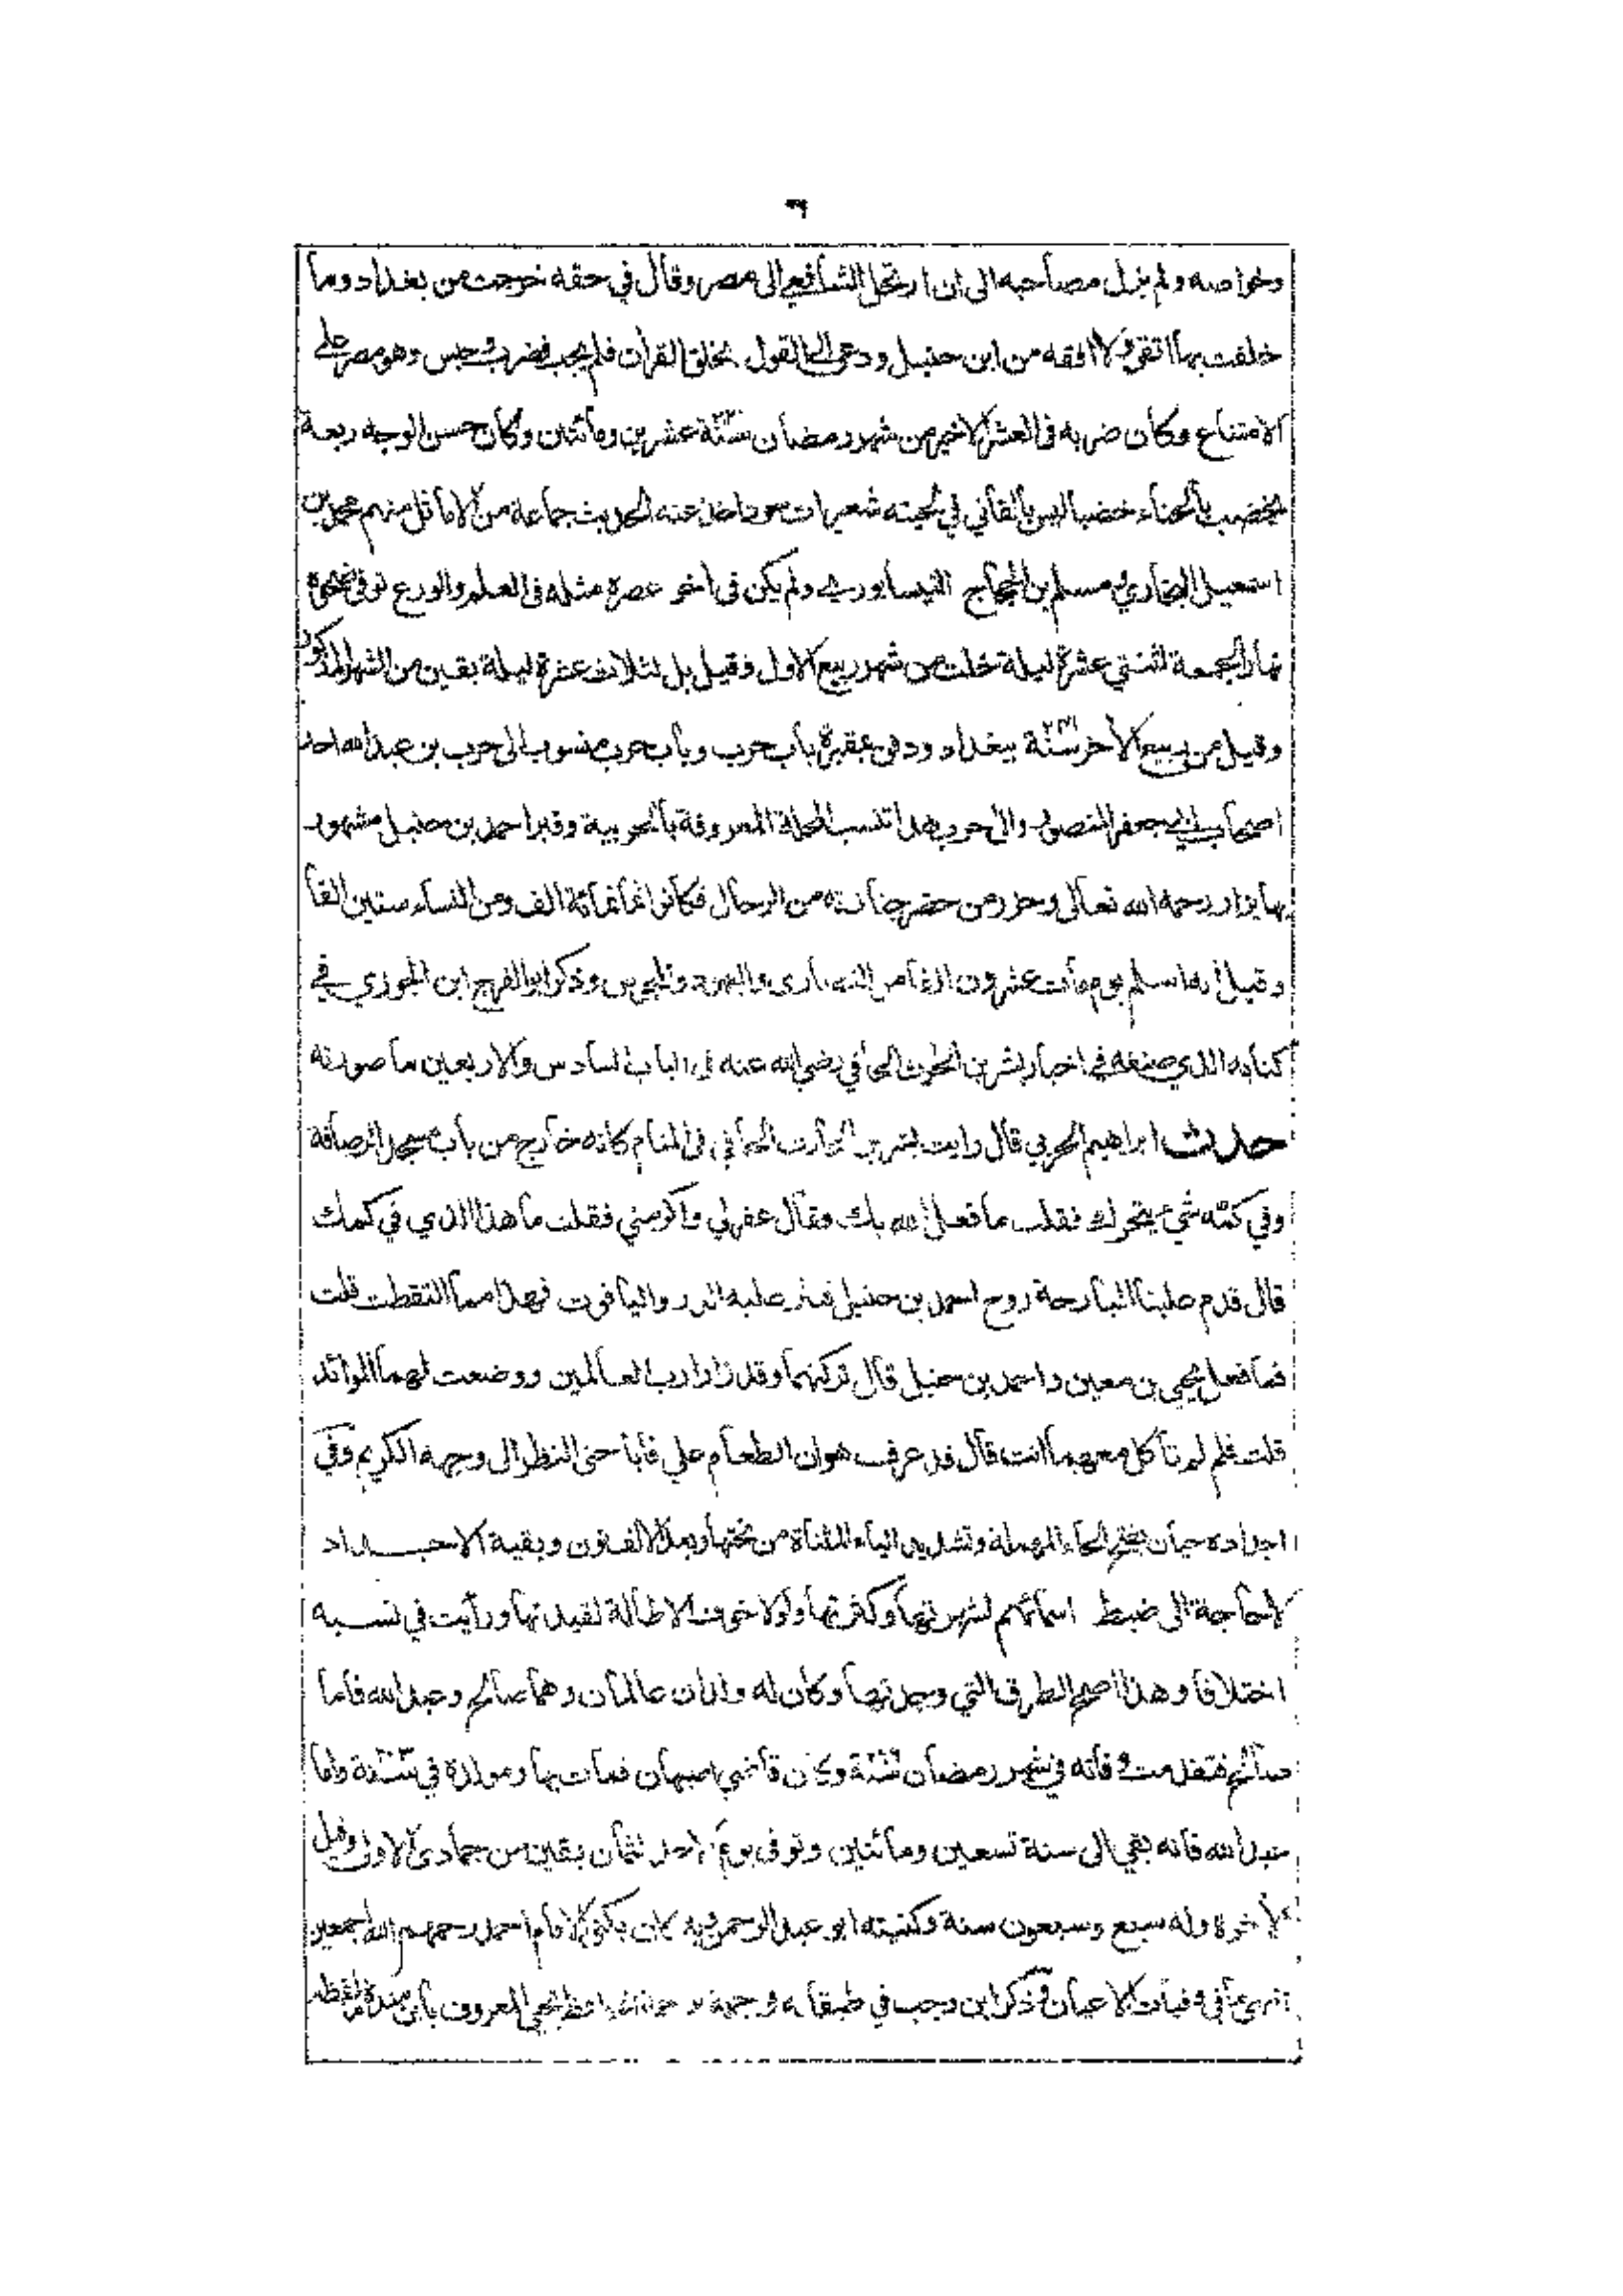 ٣
وخواصه ولم يزل مصاحبه الى ان ارتحل الشافعي الى مصر وقال في حقه خرجت من بغداد وما
خلفت بها اتقى ولا افقه من ابن حنبل ودعى الى القول بخلق القرآن فلم يجب فضرب وحبس وهو مصر على
الامتناع وكان ضربه في العشر الاخير من شهر رمضان سنة عشرين ومأتين وكان حسن الوجه ربعة
يخضب بالحناء خضبا ليس بالقاني في لحيته شعيرات سود اخذ عنه الحديث جماعة من الاماثل منهم محمد بن
اسمعيل البخاري ومسلم بن الحجاج النيسابوري ولم يكن في آخر عصره مثله في العلم والورع توفى ضحوة
نهار الجمعة لثنتي عشرة ليلة خلت من شهر ربيع الاول وقيل بل لثلاث عشرة ليلة بقين من الشهر المذكور
وقيل من ربيع الآخر سنة ٢٤١ ببغداد ودفن بمقبرة باب حرب وباب حرب منسوب الى حرب بن عبد الله احد
اصحاب ابي جعفر المنصور والى حرب هذا تنسب المحلة المعروفة بالحربية وقبر احمد بن حنبل مشهور
بها يزار رحمه الله تعالى وحزر من حضر جنازته من الرجال فكانوا ثمانمائة الف ومن النساء ستين الفا
وقيل انه اسلم يوم مات عشرون الفا من النصارى واليهود والمجوس وذكر ابو الفرج ابن الجوزي في
كتابه الذي صنفه في اخبار بشر بن الحارث الحافي رضي الله عنه في الباب السادس والاربعين ما صورته
حدث ابراهيم الحربي قال رايت بشر بن الحارث الحافي في المنام كانه خارج من باب مسجد الرصافة
وفي كمه شيء يتحرك فقلت ما فعل الله بك فقال غفر لي واكرمني فقلت ما هذا الذي في كمك
قال قدم علينا البارحة روح احمد بن حنبل فنثر عليه الدر والياقوت فهذا مما التقطت قلت
فما فعل يحيى بن معين واحمد بن حنبل قال تركتهما وقد زارا رب العالمين ووضعت لهما الموائد
قلت فلم لم تأكل معهما انت قال قد عرف هوان الطعام علي فأباحني النظر الى وجهه الكريم وفي
اجداده حيان بفتح الحاء المهملة وتشديد الياء المثناة من تحتها وبعد الالف نون وبقية الاجداد
لا حاجة الى ضبط اسمائهم لشهرتها وكثرتها ولولا خوف الاطالة لقيدتها ورأيت في نسبه
اختلافا وهذا اصح الطرق التي وجدتها وكان له ولدان عالمان وهما صالح وعبد الله فاما
صالح فتقدمت وفاته في شهر رمضان سنة وكان قاضي اصبهان فمات بها ومولده في سنة واما
عبد الله فانه بقي الى سنة تسعين ومائتين وتوفى يوم الاحد لثمان بقين من جمادى الاولى وقيل
الآخرة وله سبع وسبعون سنة وكنيته ابو عبد الرحمن وبه كان يكنى الامام احمد رحمهم الله اجمعين
انتهى ما في وفيات الاعيان وذكر ابن رجب في طبقاته في ترجمة يحيى المعروف بابن مندة